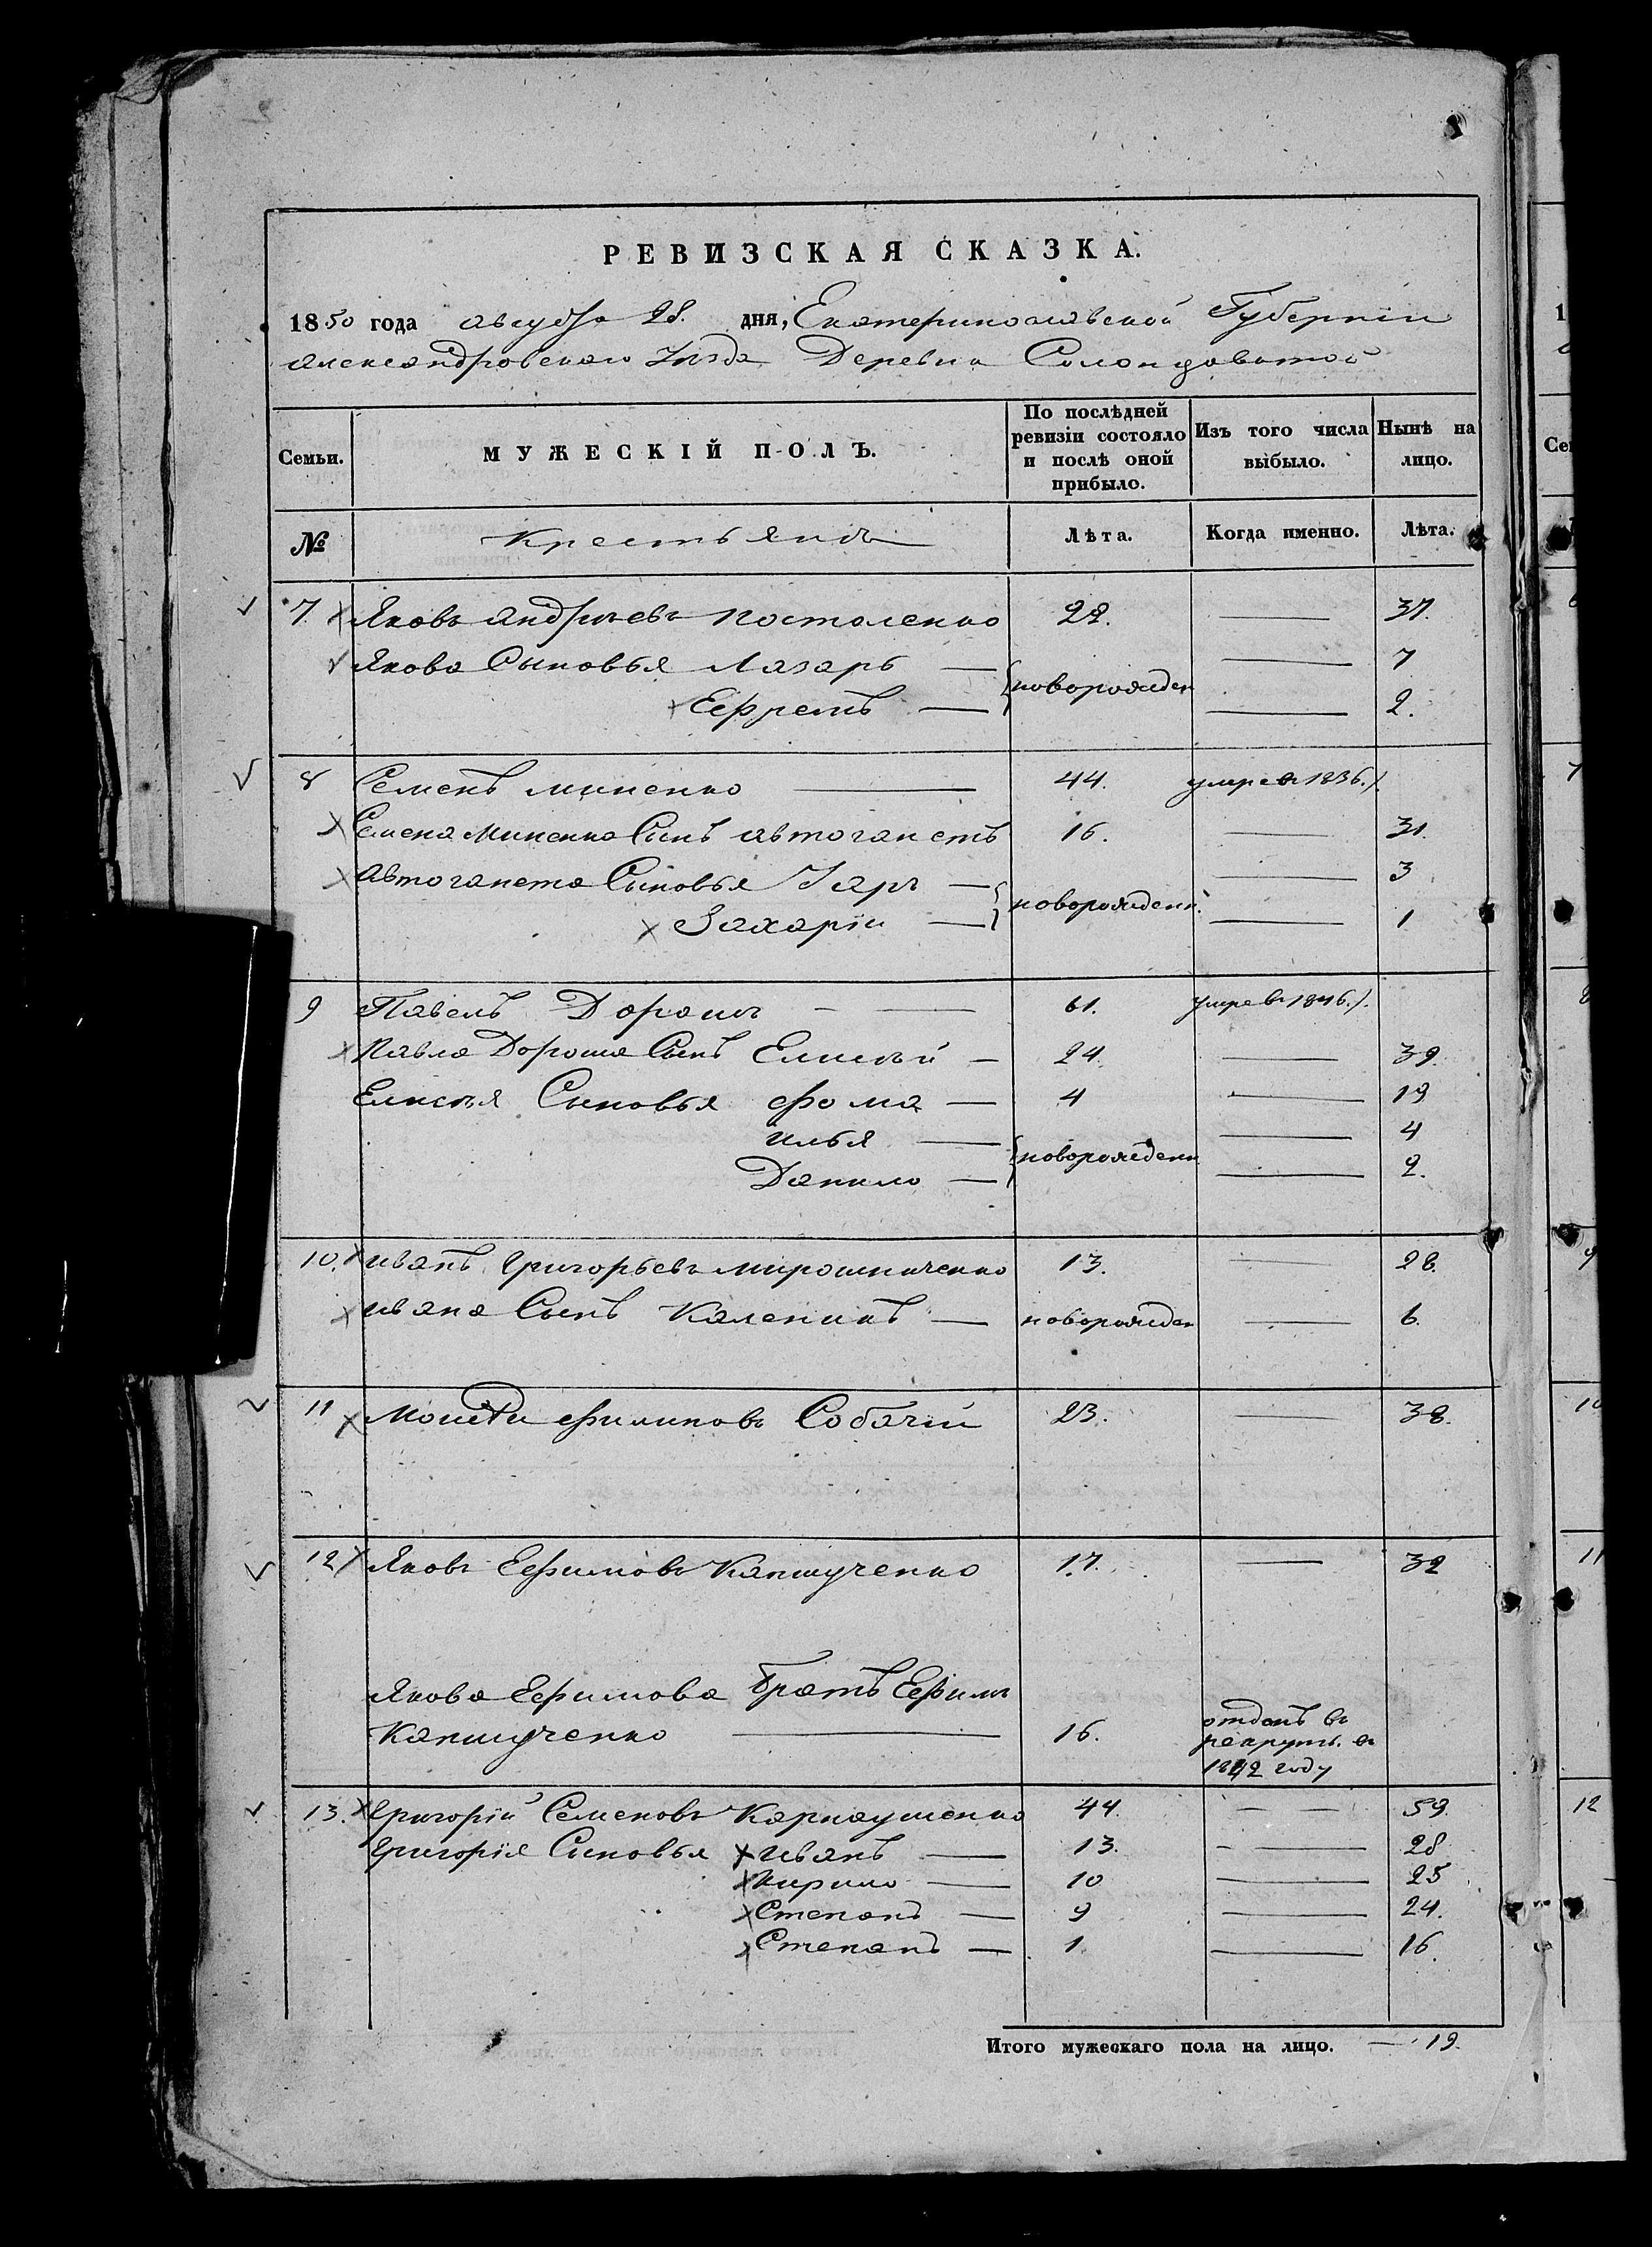 РЕВИЗСКАЯ СКАЗКА.
1850 года августа 28. дня, Екатеринославской Губерніи
Александровскаго Уѣзда Деревни Солонцоватой
Семьи. МУЖЕСКІЙ ПОЛЪ. По послѣдней ревизіи состояло и послѣ оной прибыло. Изъ того числа выбыло. Нынѣ на лицо.
№ Крестьянъ Лѣта. Когда именно. Лѣта.
7. Яковъ Андреевъ Постоленко 22. — 37.
Якова Сыновья Лазарь — новорожден — 7
Ефремъ — — 2.
8 Семенъ Миненко — 44. умре въ 1836.
Семена Миненка Сынъ Автогенетъ 16. — 31.
Автогенета Сыновья — новорожденн. — 3
Захарій — — 1
9 Павелъ Дорошъ — 61. умре въ 1846.
Павла Дороша Сынъ Елисѣй — 24. — 39.
Елисѣя Сыновья Фома — 4 — 19
Илья — новорожденн — 4
Данило — — 2.
10. Иванъ Григорьевъ Мирошниченко 13. — 28.
Ивана Сынъ Каленикъ — новорожден — 6.
11 Моисѣй Филиповъ Собачій 23. — 38.
12 Яковъ Ефимовъ Капшученко 17. — 32
Якова Ефимова Братъ Ефимъ
Капшученко — 16. отданъ въ рекруты въ 1842 году
13. Григорій Семеновъ Карнаушенко 44. — — 59.
Григорія Сыновья Иванъ — 13. — 28
Кирило — 10 — 25
Степанъ — 9 — 24.
Степанъ — 1. — 16.
Итого мужескаго пола на лицо. — 19.